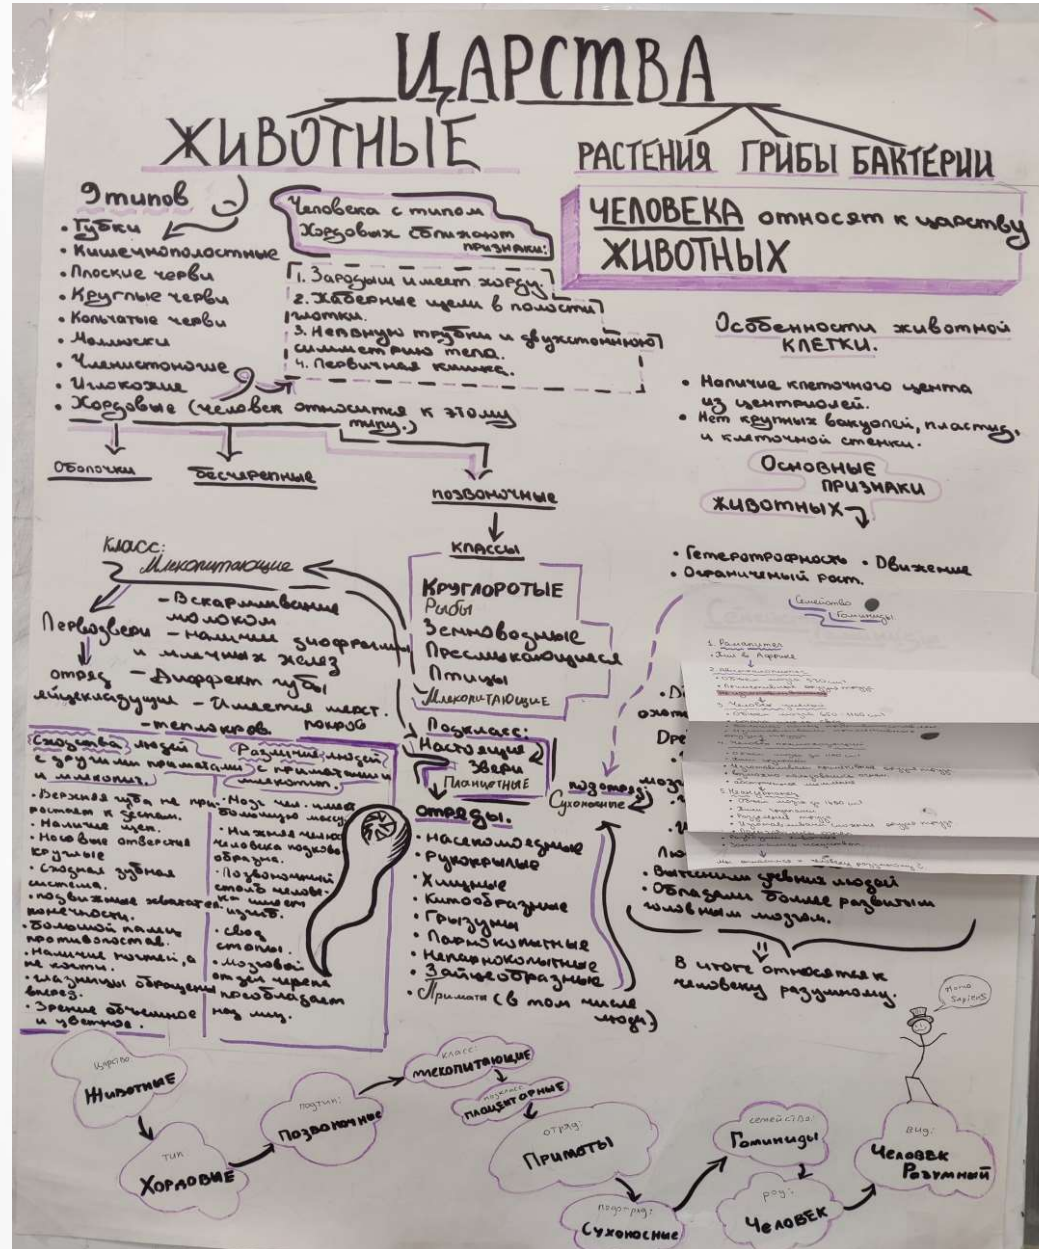 ЦАРСТВА
ЖИВОТНЫЕ
РАСТЕНИЯ ГРИБЫ БАКТЕРИИ
9 типов
• Губки
• Кишечнополостные
• Плоские черви
• Круглые черви
• Кольчатые черви
• Моллюски
• Членистоногие
• Иглокожие
• Хордовые (человек относится к этому
типу.)
Человека с типом
Хордовых сближают
признаки:
1. Зародыш имеет хорду.
2. Жаберные щели в полости
глотки.
3. Нервную трубки и двухстоннюю
симметрию тела.
4. Первичная кишка.
ЧЕЛОВЕКА относят к царству
ЖИВОТНЫХ
Особенности животной
КЛЕТКИ.
• Наличие клеточного цента
из центриолей.
• Нет крупных вакуолей, пластид,
и клеточной стенки.
Основные
признаки
животных
• Гетеротрофность • Движение
• Ограниченый рост.
Оболочки
бесчерепные
позвоночные
классы
Круглоротые
Рыбы
Земноводные
Пресмыкающиеся
Птицы
Млекопитающие
Класс:
Млекопитающие
Первозвери
отряд
яйцекладущие
- Вскармливание
молоком
- наличие диофрагмы
и млечных желез
- Диффект губы
- Имеется шерст.
покров
- теплокров.
Подкласс:
Настоящие
Звери
Плацетные
подотряд:
Сухоносые
отряды.
• Насекомоедные
• Рукокрылые
• Хищные
• Китообразные
• Грызуны
• Парнокопытные
• Непарнокопытные
• Зайцеобразные
• Примати (в том числе
люди)
Сходства людей
с другими приматами
и млекопит.
• Верхняя губа не при-
ростает к деснам.
• Наличие щек.
• Носовые отверстия
круглые
• Сходная зубная
система.
• подвижные хватател.
конечности.
• большой палец
противопостав.
• Наличие ногтей, а
не когти.
• глазницы обращены
вперед.
• Зрение объемное
и цветное.
Различие людей
с приматами и
млекопит.
• Мозг чел. имее
большую массу
• Нижняя челю
человека подково
образна.
• Позвоночный
столб челове-
ка имеет
изгиб.
• свод
стопы.
• мозговой
отдел черепа
преобладает
над лиц.
Семейство
Гоминиды
• Жил в Африке
• Вытеснили древних людей
• Обладали более развитым
головным мозгом.
В итоге относятся к
человеку разумному.
Homo
Sapiens
царство:
Животные
тип
Хордовые
подтип:
Позвоночные
класс:
млекопитающие
подкласс
плацентарные
отряд:
Приматы
подотряд:
Сухоносые
семейство:
Гоминиды
род:
Человек
вид:
Человек
Разумный